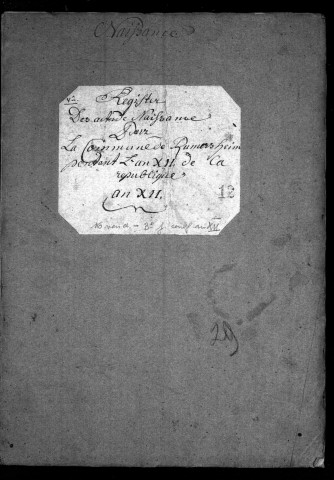 Naissance
Register
Des acte de Naissance
Pour
La Commune de Rumersheim
pendent L'an XII de la
republique
an XII.
12
29